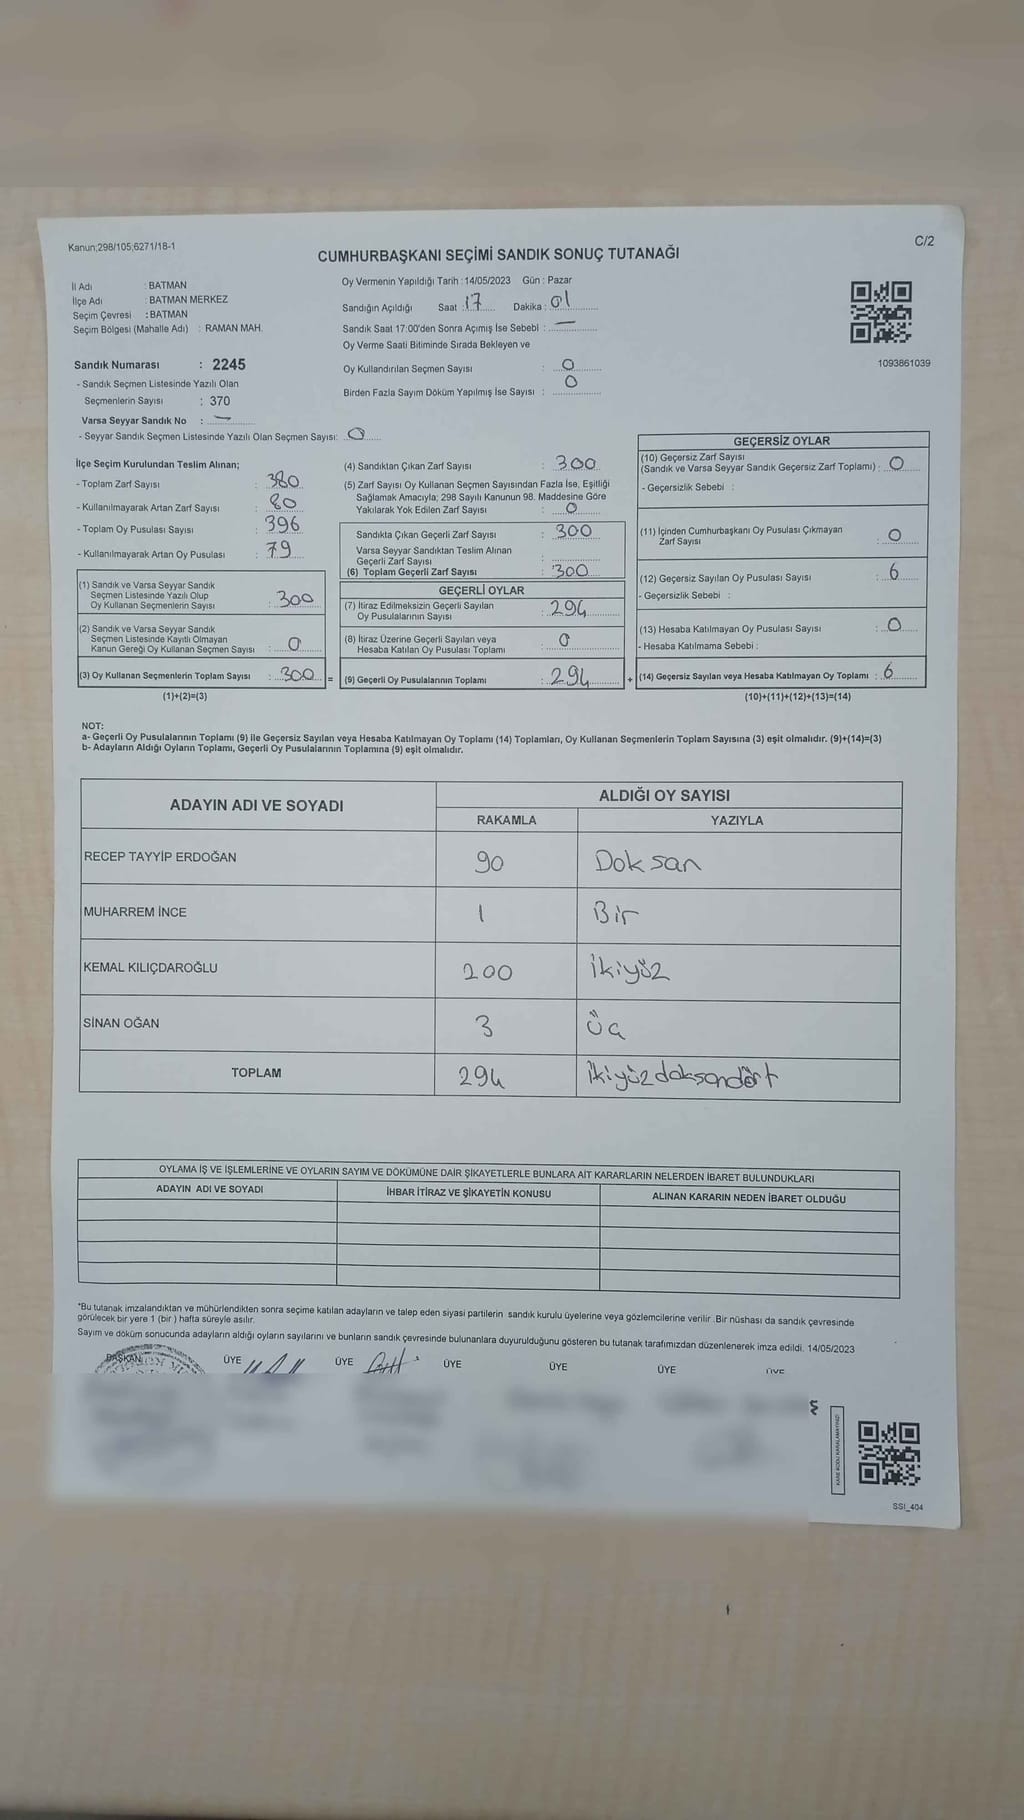 Kanun;298/105,6271/18-1
C/2
CUMHURBAŞKANI SEÇİMİ SANDIK SONUÇ TUTANAĞI
İl Adı : BATMAN
İlçe Adı : BATMAN MERKEZ
Seçim Çevresi : BATMAN
Seçim Bölgesi (Mahalle Adı) : RAMAN MAH.
Oy Vermenin Yapıldığı Tarih :14/05/2023 Gün : Pazar
Sandığın Açıldığı Saat : 17 Dakika : 01
Sandık Saat 17:00'den Sonra Açımış İse Sebebi : —
Oy Verme Saati Bitiminde Sırada Bekleyen ve
Oy Kullandırılan Seçmen Sayısı : 0
Birden Fazla Sayım Döküm Yapılmış İse Sayısı : 0
1093861039
Sandık Numarası : 2245
- Sandık Seçmen Listesinde Yazılı Olan
Seçmenlerin Sayısı : 370
Varsa Seyyar Sandık No : —
- Seyyar Sandık Seçmen Listesinde Yazılı Olan Seçmen Sayısı: 0
İlçe Seçim Kurulundan Teslim Alınan;
- Toplam Zarf Sayısı : 380
- Kullanılmayarak Artan Zarf Sayısı : 80
- Toplam Oy Pusulası Sayısı : 396
- Kullanılmayarak Artan Oy Pusulası : 79
(1) Sandık ve Varsa Seyyar Sandık
Seçmen Listesinde Yazılı Olup
Oy Kullanan Seçmenlerin Sayısı : 300
(2) Sandık ve Varsa Seyyar Sandık
Seçmen Listesinde Kayıtlı Olmayan
Kanun Gereği Oy Kullanan Seçmen Sayısı : 0
(3) Oy Kullanan Seçmenlerin Toplam Sayısı : 300 =
(1)+(2)=(3)
(4) Sandıktan Çıkan Zarf Sayısı : 300
(5) Zarf Sayısı Oy Kullanan Seçmen Sayısından Fazla İse, Eşitliği
Sağlamak Amacıyla; 298 Sayılı Kanunun 98. Maddesine Göre
Yakılarak Yok Edilen Zarf Sayısı : 0
Sandıkta Çıkan Geçerli Zarf Sayısı : 300
Varsa Seyyar Sandıktan Teslim Alınan
Geçerli Zarf Sayısı :
(6) Toplam Geçerli Zarf Sayısı : 300
GEÇERLİ OYLAR
(7) İtiraz Edilmeksizin Geçerli Sayılan
Oy Pusulalarının Sayısı : 294
(8) İtiraz Üzerine Geçerli Sayılan veya
Hesaba Katılan Oy Pusulası Toplamı : 0
(9) Geçerli Oy Pusulalarının Toplamı : 294 +
GEÇERSİZ OYLAR
(10) Geçersiz Zarf Sayısı
(Sandık ve Varsa Seyyar Sandık Geçersiz Zarf Toplamı) : 0
- Geçersizlik Sebebi :
(11) İçinden Cumhurbaşkanı Oy Pusulası Çıkmayan
Zarf Sayısı : 0
(12) Geçersiz Sayılan Oy Pusulası Sayısı : 6
- Geçersizlik Sebebi :
(13) Hesaba Katılmayan Oy Pusulası Sayısı : 0
- Hesaba Katılmama Sebebi :
(14) Geçersiz Sayılan veya Hesaba Katılmayan Oy Toplamı : 6
(10)+(11)+(12)+(13)=(14)
NOT:
a- Geçerli Oy Pusulalarının Toplamı (9) ile Geçersiz Sayılan veya Hesaba Katılmayan Oy Toplamı (14) Toplamları, Oy Kullanan Seçmenlerin Toplam Sayısına (3) eşit olmalıdır. (9)+(14)=(3)
b- Adayların Aldığı Oyların Toplamı, Geçerli Oy Pusulalarının Toplamına (9) eşit olmalıdır.
ADAYIN ADI VE SOYADI ALDIĞI OY SAYISI
RAKAMLA YAZIYLA
RECEP TAYYİP ERDOĞAN 90 Doksan
MUHARREM İNCE 1 Bir
KEMAL KILIÇDAROĞLU 200 İkiyüz
SİNAN OĞAN 3 Üç
TOPLAM 294 İkiyüzdoksandört
OYLAMA İŞ VE İŞLEMLERİNE VE OYLARIN SAYIM VE DÖKÜMÜNE DAİR ŞİKAYETLERLE BUNLARA AİT KARARLARIN NELERDEN İBARET BULUNDUKLARI
ADAYIN ADI VE SOYADI İHBAR İTİRAZ VE ŞİKAYETİN KONUSU ALINAN KARARIN NEDEN İBARET OLDUĞU
*Bu tutanak imzalandıktan ve mühürlendikten sonra seçime katılan adayların ve talep eden siyasi partilerin sandık kurulu üyelerine veya gözlemcilerine verilir. Bir nüshası da sandık çevresinde
görülecek bir yere 1 (bir ) hafta süreyle asılır.
Sayım ve döküm sonucunda adayların aldığı oyların sayılarını ve bunların sandık çevresinde bulunanlara duyurulduğunu gösteren bu tutanak tarafımızdan düzenlenerek imza edildi. 14/05/2023
BAŞKAN ÜYE ÜYE ÜYE ÜYE ÜYE ÜYE
KARE KODU KARALAMAYINIZ!
SSI_404